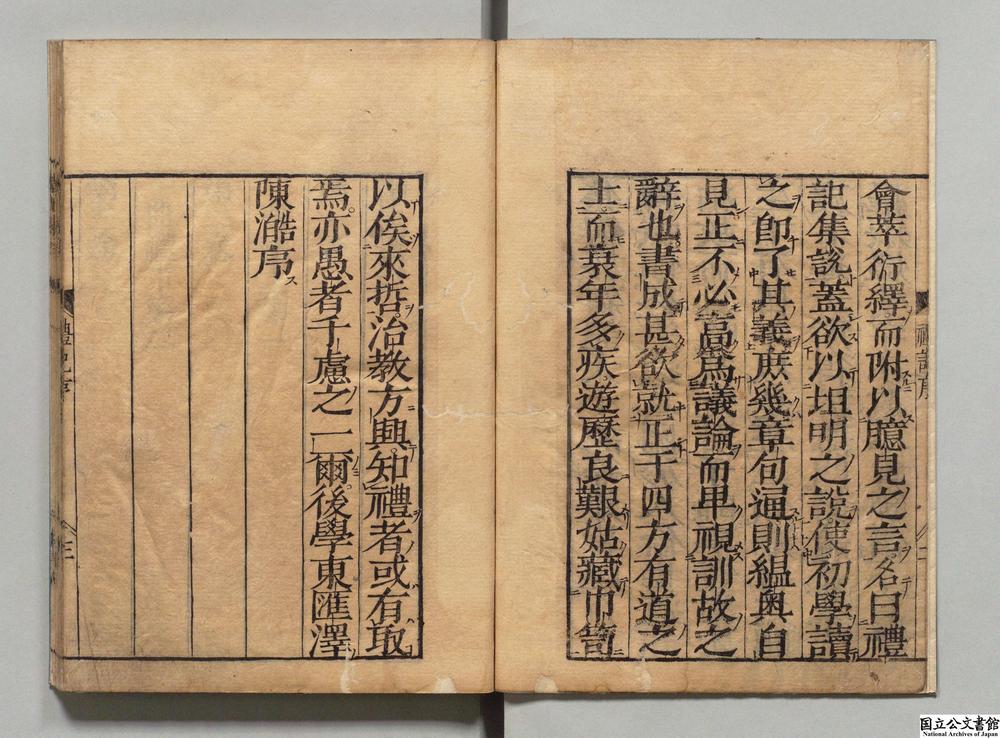 會萃衍繹而附以臆見之言名曰禮
記集說蓋欲以坦明之說使初學讀
之即了其義庶幾章句通則縕奧自
見正不必高爲議論而卑視訓故之
辭也書成甚欲就正于四方有道之
士而衰年多疾遊歷良艱姑藏巾笥
以俟來哲治教方興知禮者或有取
焉亦愚者千慮之一爾後學東匯澤
陳澔序
禮記序
二
禮記序
三
国立公文書館
National Archives of Japan